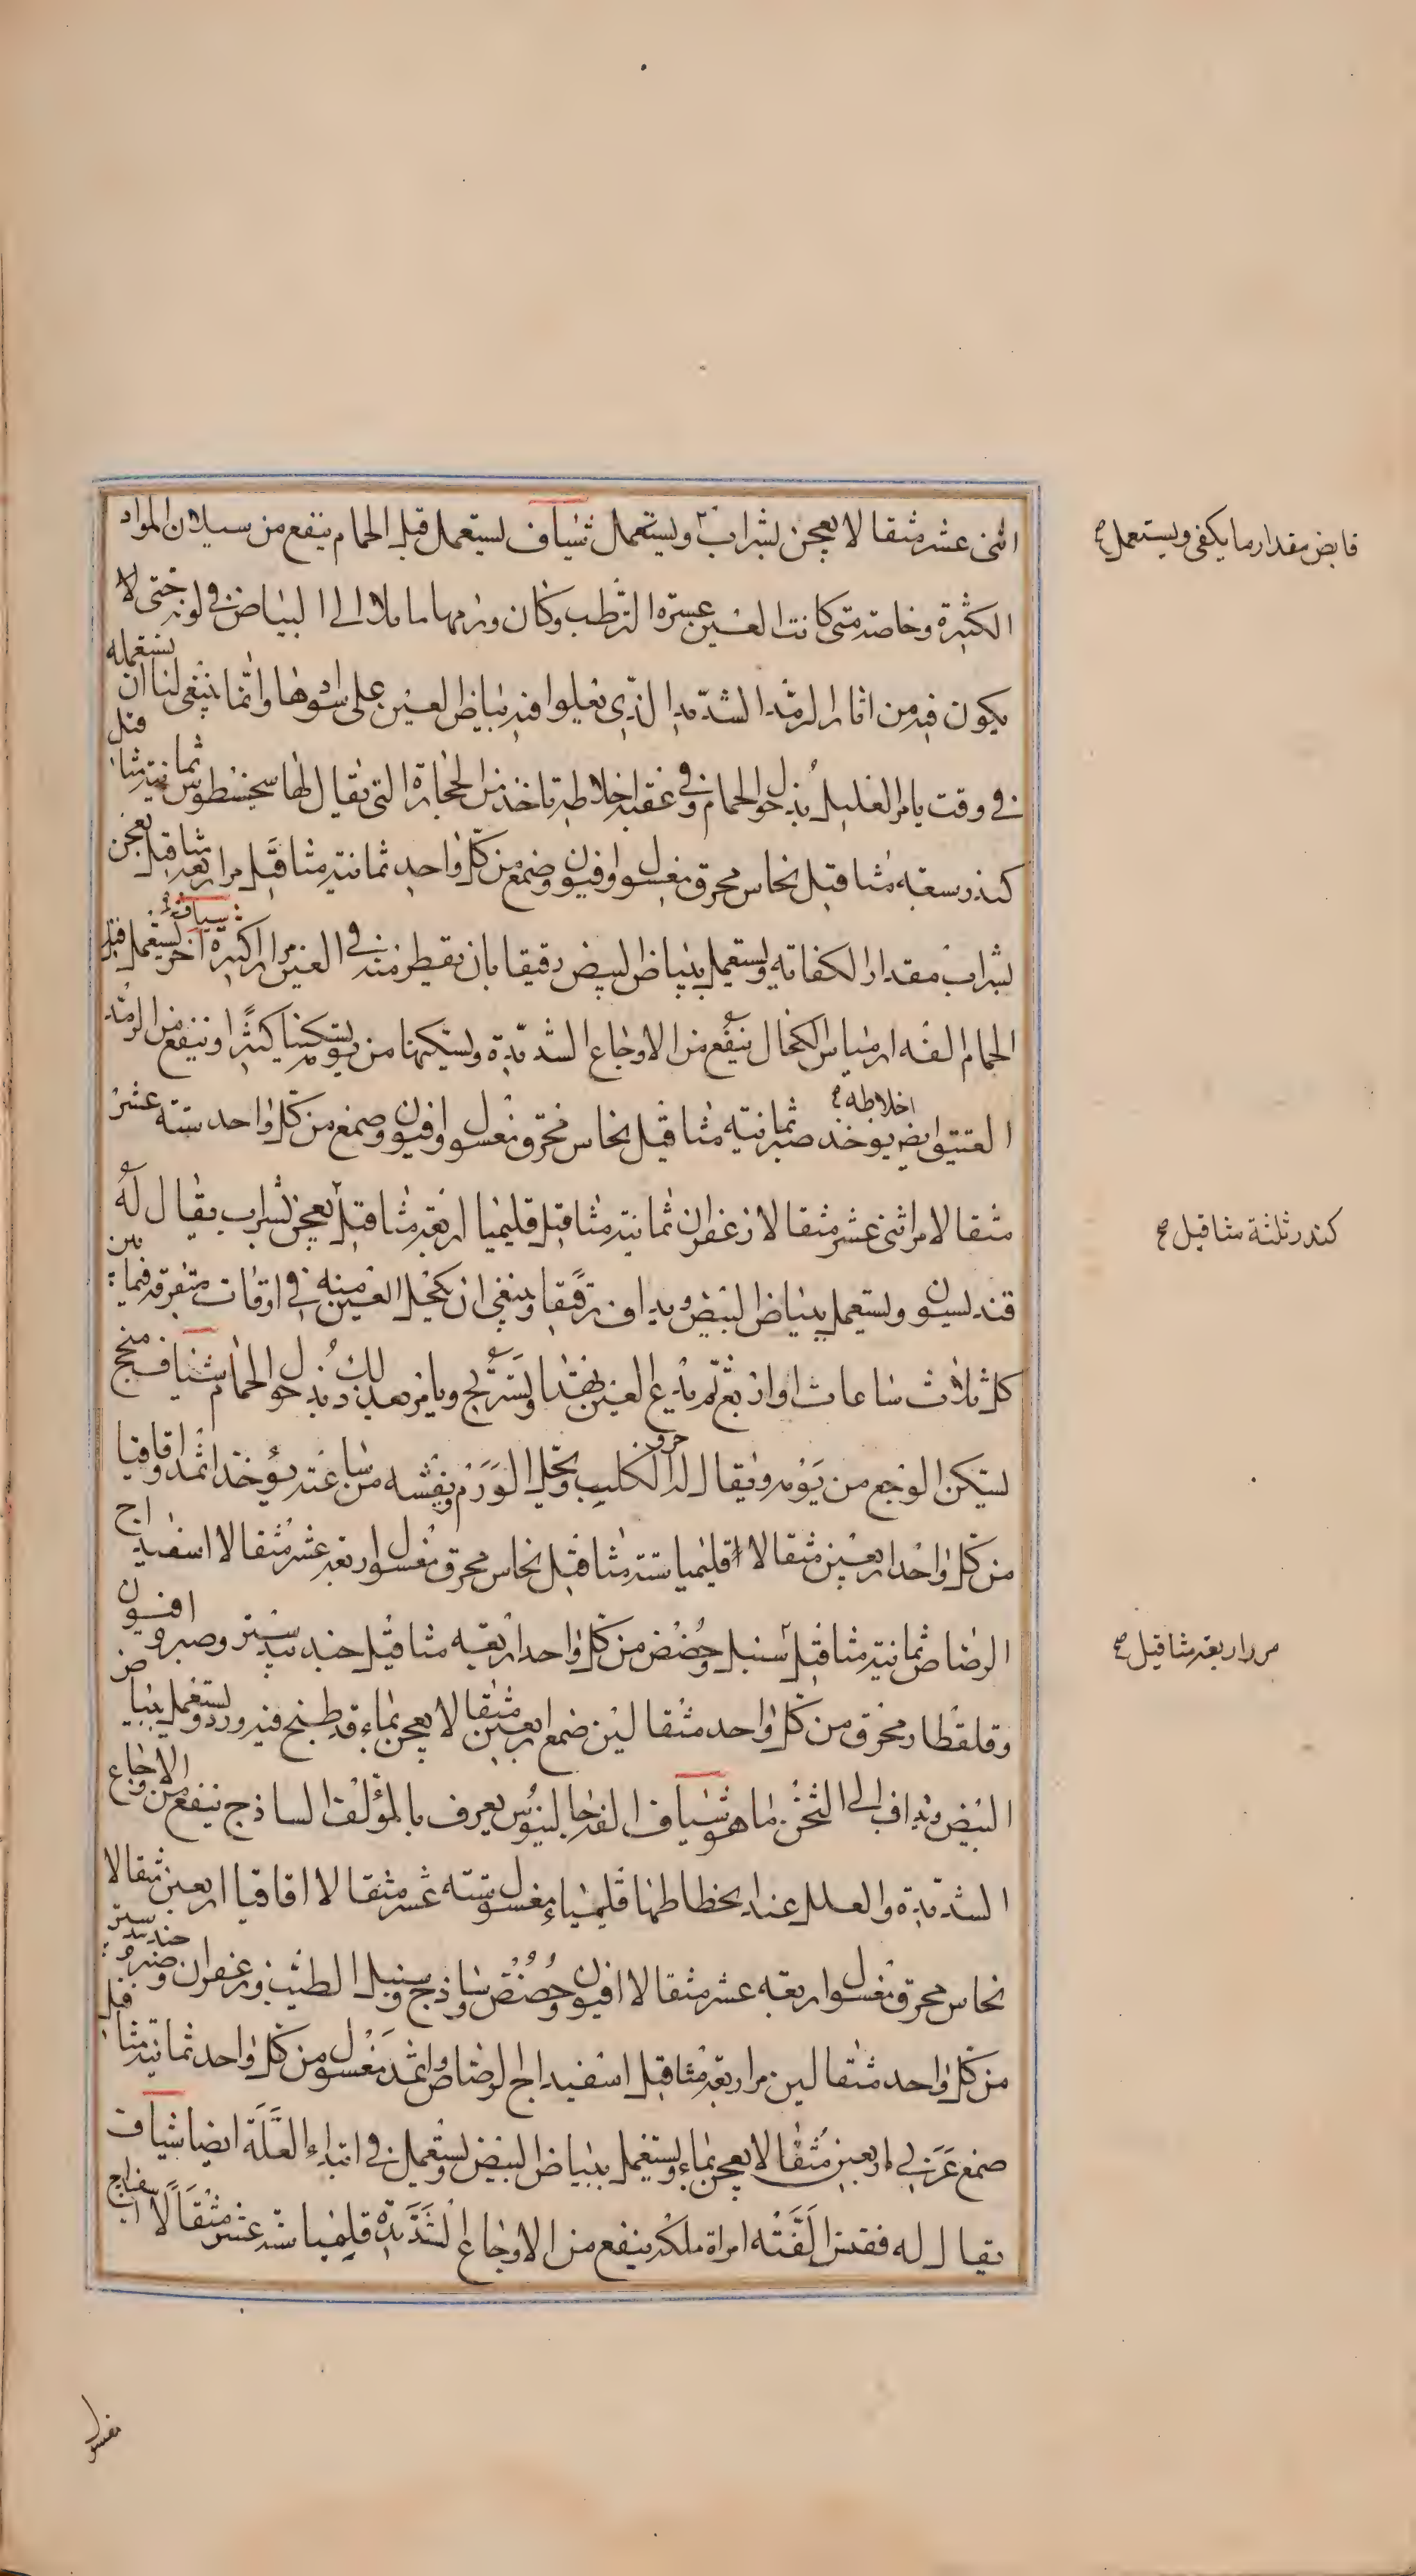 اثنى عشر مثقالا يعجن بشراب ويستعمل شياف يستعمل قبل الحمام ينفع من سيلان المواد
قابض مقدار ما يكفى ويستعمل صح
الكثيرة وخاصة متى كانت العين عسرة الترطب وكان ورمها مايلا الى البياض فى لونه حتى لا
يكون فيه من اثار الرمد الشديد الذى يعلوا فيه بياض العين على سوادها وانما ينبغى لنا ان نستعمله
فى وقت يامر العليل بدخول الحمام وفى عقبه اخلاطه تاخذ من الحجارة التى يقال لها سحسطوس ثمانية مثاقيل
كندر سبعة مثاقيل نحاس محرق مغسول وافيون وصمغ من كل واحد ثمانية مثاقيل مر اربعة مثاقيل يعجن
بشراب مقدار الكفاية ويستعمل ببياض البيض رقيقا بان يقطر منه فى العين مرارا كثيرة شياف اخر يستعمل قبل
الحمام الفه ارمياس الكحال ينفع من الاوجاع الشديدة ويسكنها من يومه تسكينا كثيرا وينفع من الرمد
العتيق ايض اخلاطه يوخذ صبر ثمانية مثاقيل نحاس محرق مغسول وافيون وصمغ من كل واحد ستة عشر
مثقالا مر اثنى عشر مثقالا زعفران ثمانية مثاقيل قليميا اربعة مثاقيل يعجن بشراب يقال له
كندر ثلثة مثاقيل صح
قندليسون ويستعمل ببياض البيض ويداف رقيقا وينبغى ان يكحل العين منه فى اوقات متفرقة فيما بين
كل ثلاث ساعات او اربع ثم يدع العين تهدا وتستريح ويامر بعد ذلك بدخول الحمام شياف منجح
يسكن الوجع من يومه ويقال له جرو الكلب ويحلل الورم ويفشه من ساعته يؤخذ اثمد واقاقيا
من كل واحد اربعين مثقالا اقليميا ستة مثاقيل نحاس محرق مغسول اربعة عشر مثقالا اسفيداج
الرصاص ثمانية مثاقيل سنبل وحضض من كل واحد اربعة مثاقيل جندبيدستر وصبر وافيون
مر اربعة مثاقيل صح
وقلقطار محرق من كل واحد مثقالين صمغ اربعين مثقالا يعجن بماء قد طبخ فيه ورد ويستعمل ببياض
البيض ويداف الى الثخن ما هو شياف الفه جالينوس يعرف بالمؤلف الساذج ينفع من الاوجاع
الشديدة والعلل عند انحطاطها قليمياء مغسول ستة عشر مثقالا اقاقيا اربعين مثقالا
نحاس محرق مغسول اربعة عشر مثقالا افيون وحضض وساذج وسنبل الطيب وزعفران وصبر وجندبيدستر
من كل واحد مثقالين مر اربعة مثاقيل اسفيداج الرصاص واثمد مغسول من كل واحد ثمانية مثاقيل
صمغ عربى اربعين مثقالا يعجن بماء ويستعمل ببياض البيض يستعمل فى ابتداء العلة ايضا شياف
يقال له فقنس الفته امراة ملكة ينفع من الاوجاع الشديدة قليميا ستة عشر مثقالا اسفيداج
مغسول